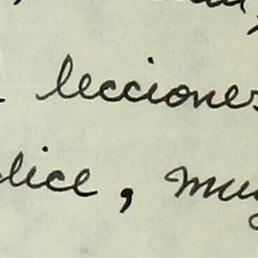 lecciones
dice, muy